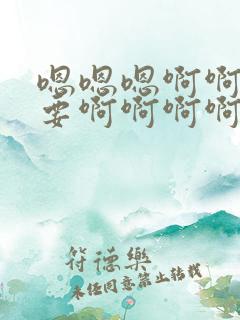 嗯嗯嗯啊啊
要啊啊啊啊
符德樂
未经同意禁止转载